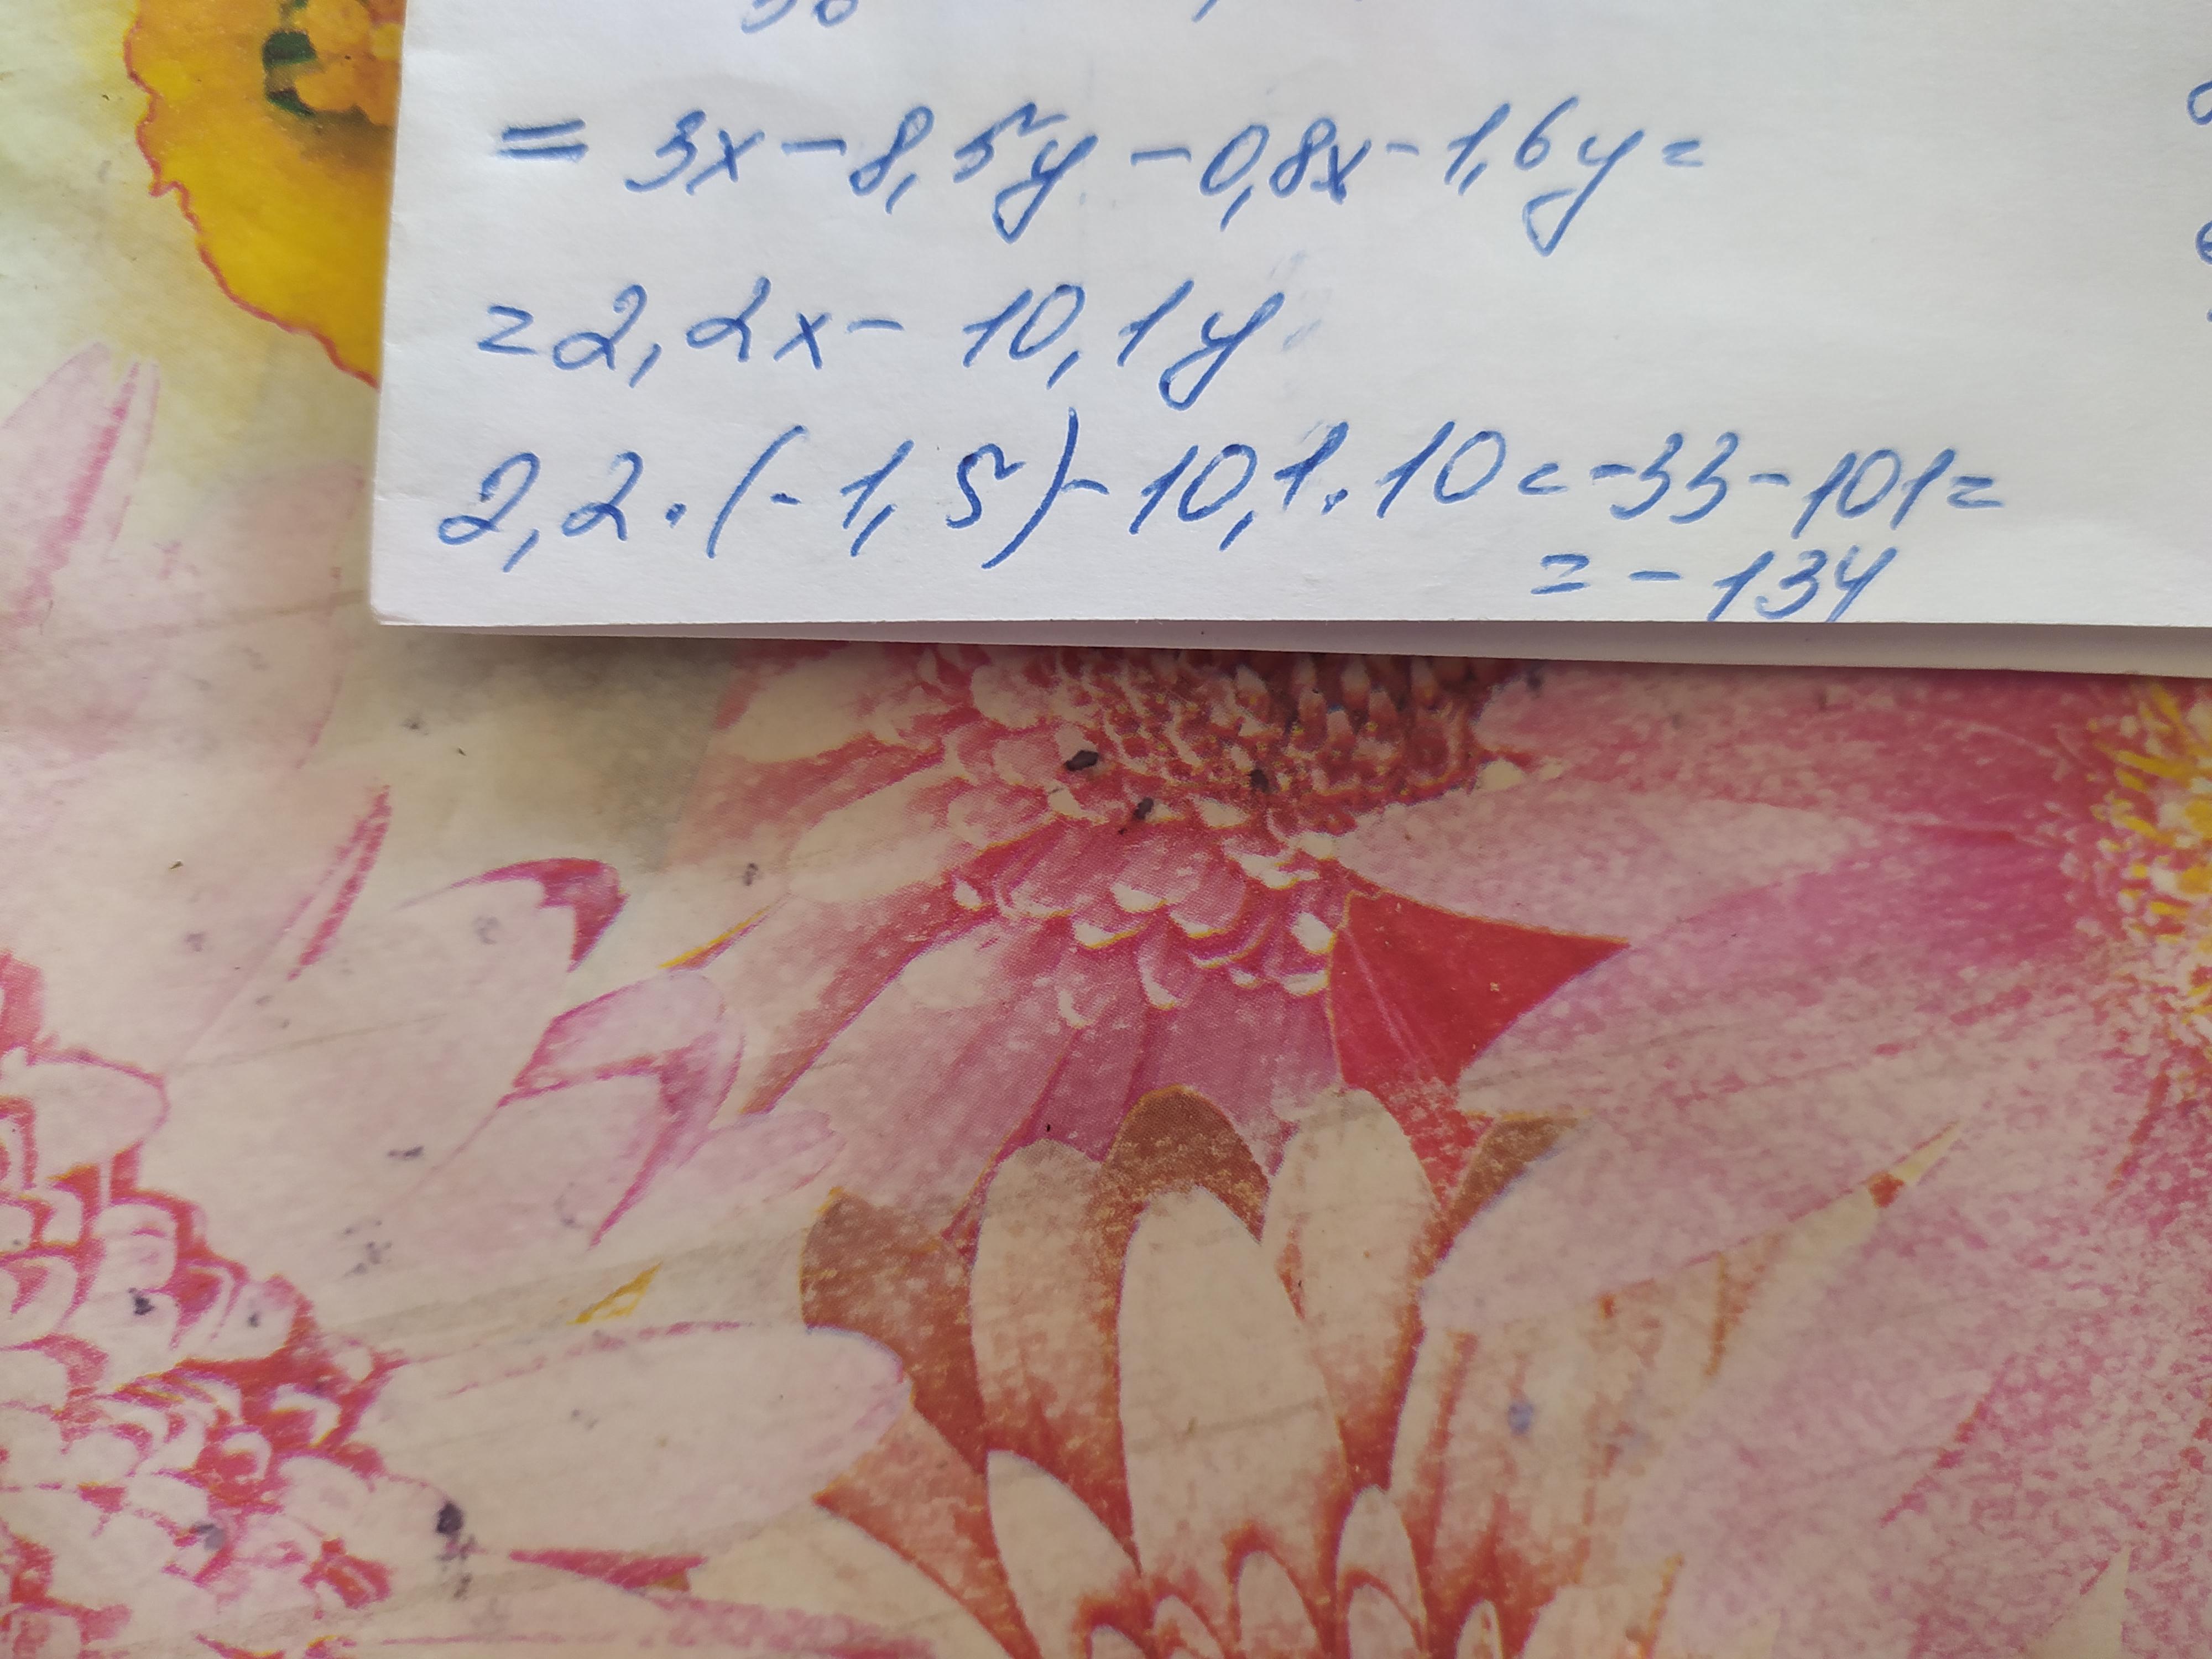 = 3x - 8,5y - 0,8x - 1,6y =
= 2,2x - 10,1y
2,2 · (-1,5) - 10,1 · 10 = -33 - 101 =
= - 134